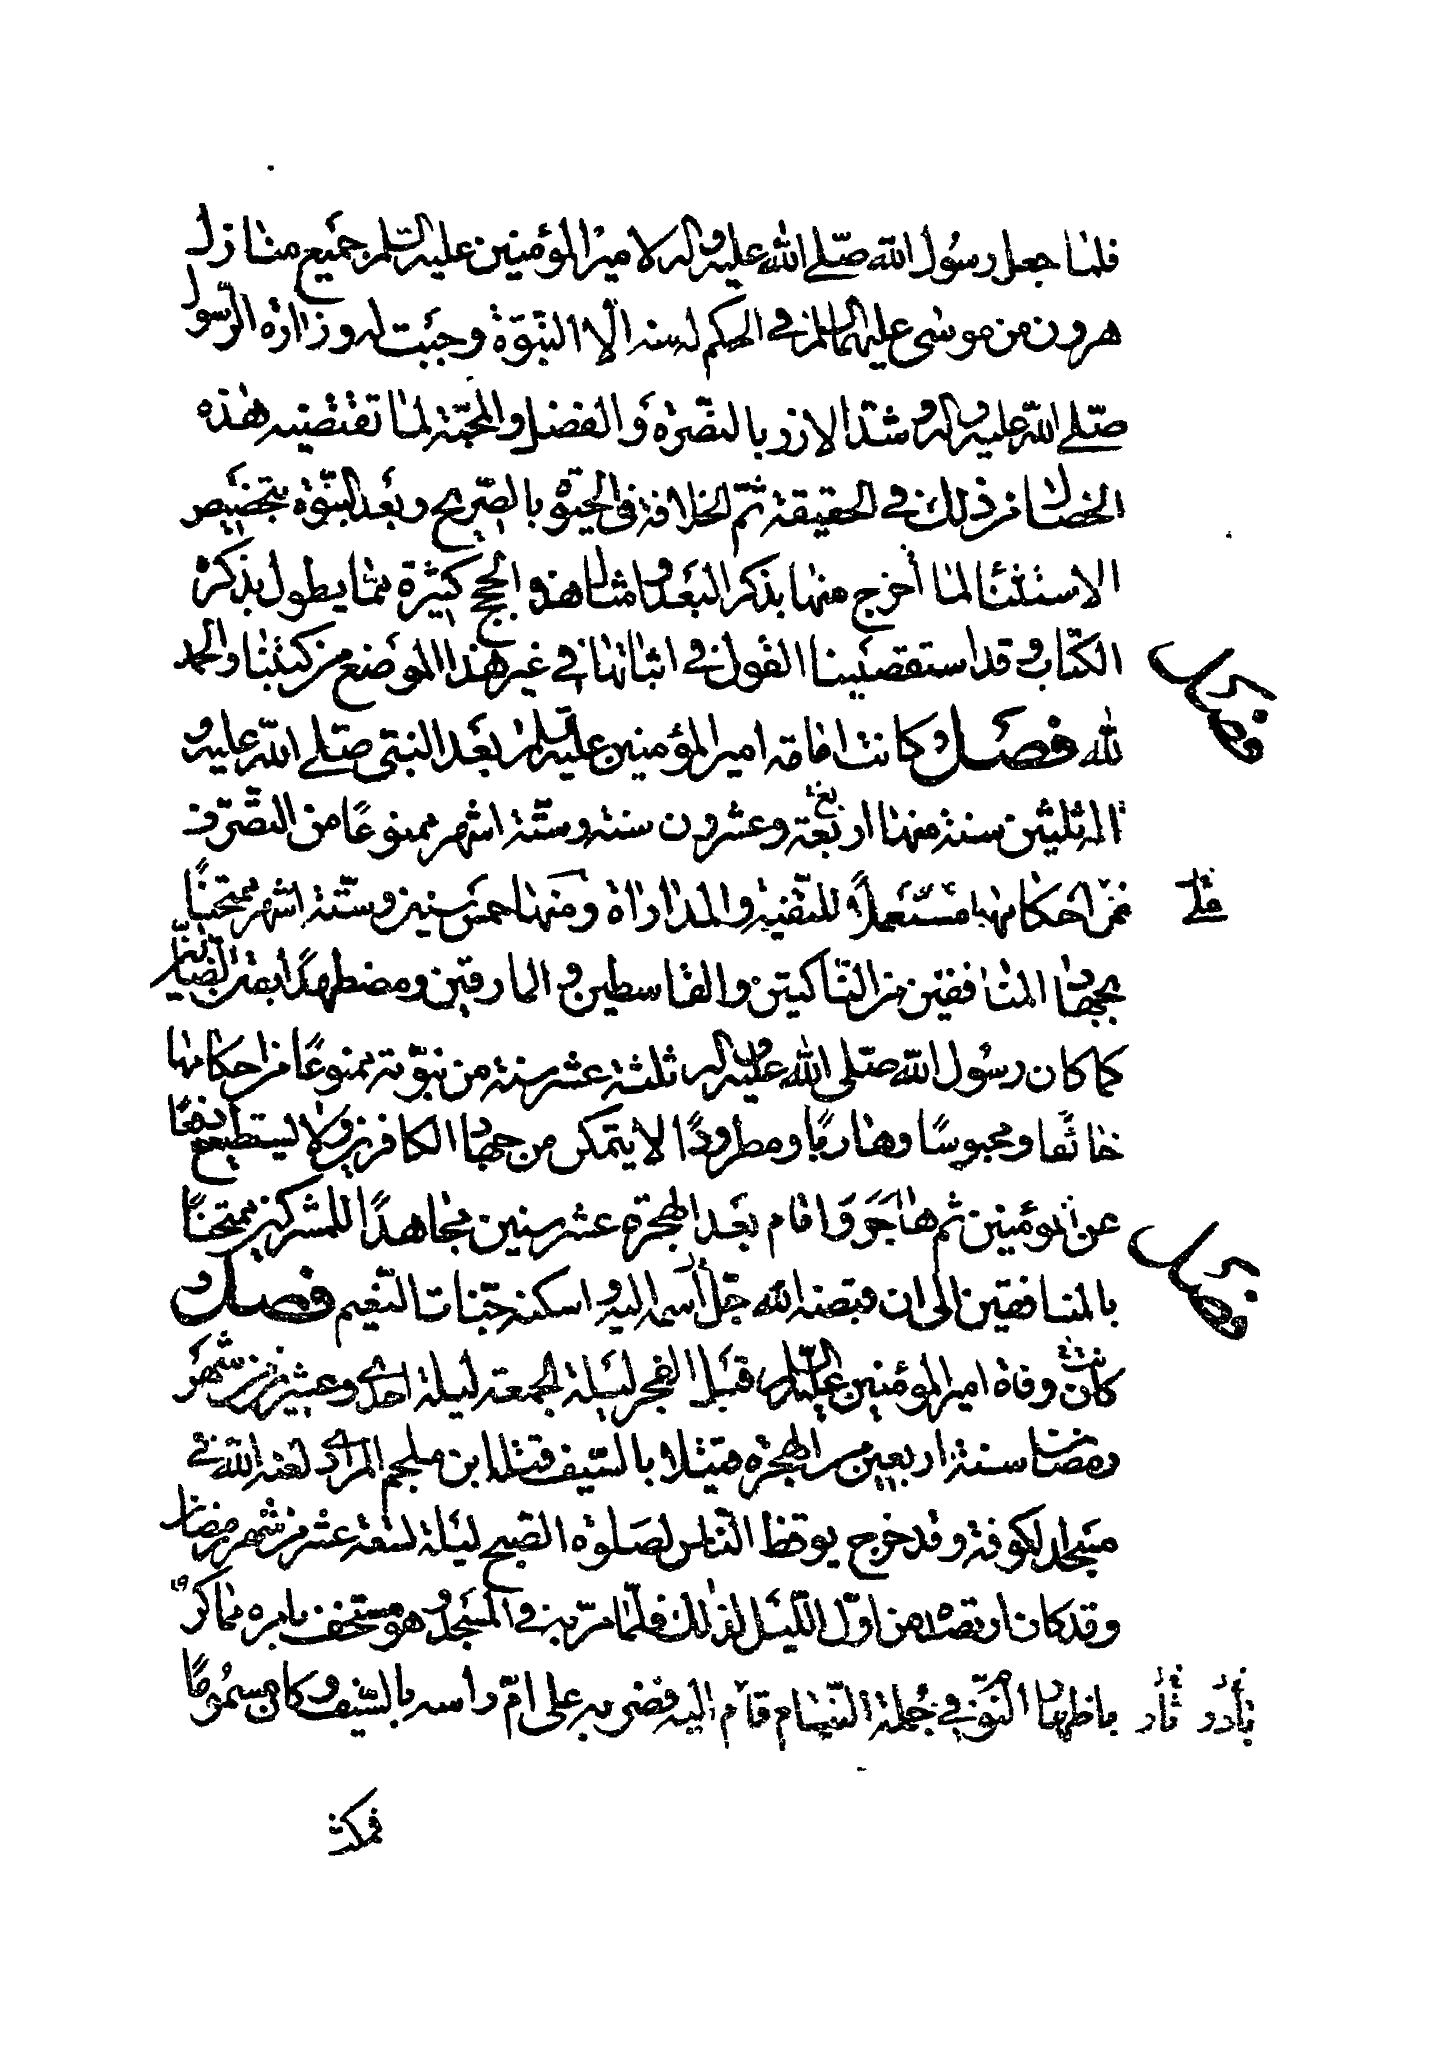 فلما جعل رسول الله صلى الله عليه واله لامير المؤمنين عليه السلم جميع منازل
هرون من موسى عليهما السلم في الحكم له منه الا النبوة وجبت له وزارة الرسول
صلى الله عليه واله وشد الازر وبالنصرة والفضل والمحبة لما تقتضيه هذه
الخصال من ذلك في الحقيقة ثم الخلافة في الحيوة بالصريح وبعد النبوة بتخصيص
الاستثناء لما أخرج منها بذكر البعد وامثال هذه الحجج كثيرة مما يطول بذكره
الكتاب وقد استقصينا القول في اثباتها في غير هذا الموضع من كتبنا والحمد
فصل
لله فصل وكانت امامة امير المؤمنين عليه السلم بعد النبي صلى الله عليه و
اله ثلثين سنة منها اربعة وعشرون سنة وستة اشهر ممنوعا من التصرف
في احكامها مستعملا للتقية والمداراة ومنها خمس سنين وستة اشهر ممتحنا
بجهاد المنافقين من الناكثين والقاسطين والمارقين ومضطهدا بفتن الضالين
كما كان رسول الله صلى الله عليه واله ثلثة عشر سنة من نبوته ممنوعا من احكامها
خائفا ومحبوسا وهاربا ومطرودا لا يتمكن من جهاد الكافرين ولا يستطيع دفعا
عن المؤمنين ثم هاجر واقام بعد الهجرة عشر سنين مجاهدا للمشركين ممتحنا
بالمنافقين الى ان قبضه الله جل اسمه اليه واسكنه جنات النعيم فصل و
فصل
كانت وفاة امير المؤمنين عليه السلم قبل الفجر ليلة الجمعة ليلة احدى وعشرين من شهر
رمضان سنة اربعين من الهجرة قتيلا بالسيف قتله ابن ملجم المرادي لعنه الله في
مسجد الكوفة وقد خرج يوقظ الناس لصلوة الصبح ليلة تسعة عشر من شهر رمضان
وقد كان ارتصده من اول الليل لذلك فلما مر به في المسجد وهو مستخف بامره مماكر
باظهار النوم في جملة النيام قام اليه فضربه على ام راسه بالسيف وكان مسموما
فمكث